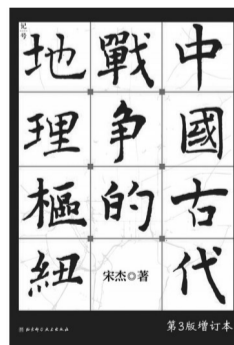 中國古代
戰争的
地理樞紐
宋杰◎著
第3版增订本